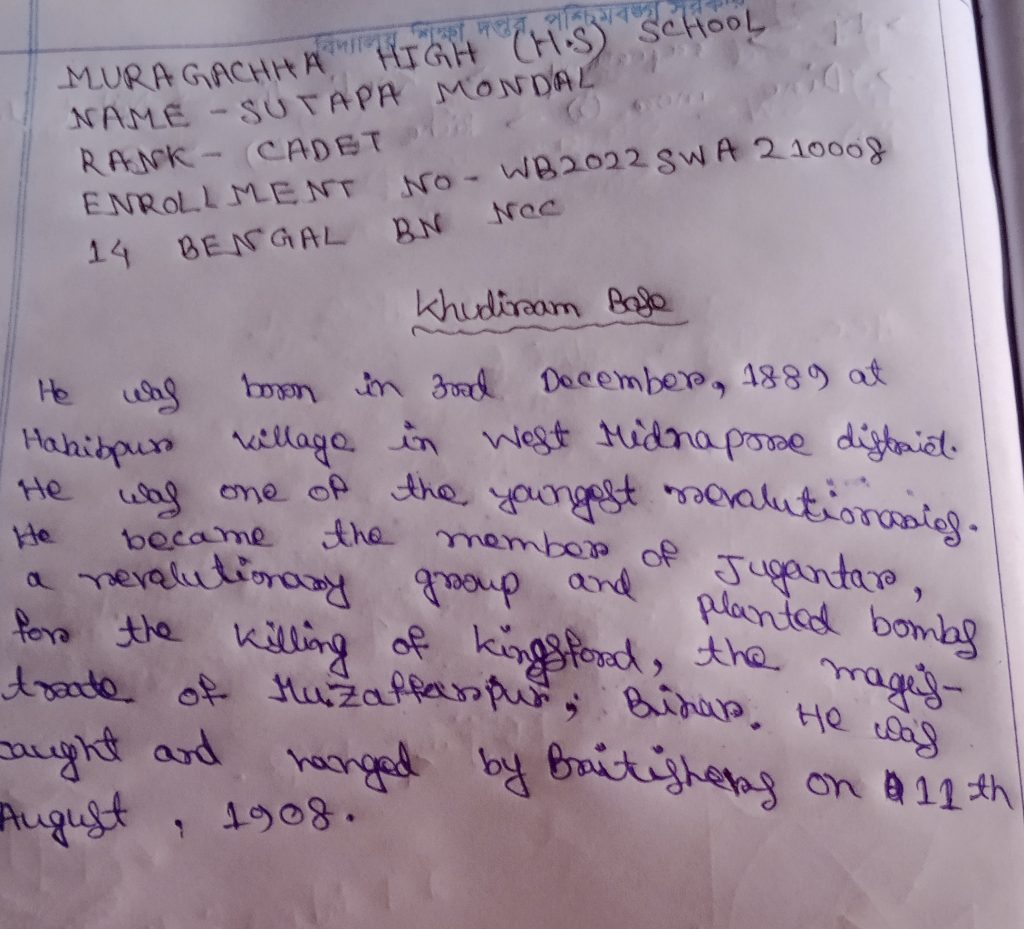 বিদ্যালয় শিক্ষা দপ্তর, পশ্চিমবঙ্গ সরকার
MURAGACHHA HIGH (H.S) SCHOOL
NAME - SUTAPA MONDAL
RANK - CADET
ENROLLMENT NO - WB2022SWA210008
14 BENGAL BN NCC
Khudiram Bose
He was born in 3rd December, 1889 at
Habibpur village in West Midnapore district.
He was one of the youngest revolutionaries.
He became the member of Jugantar,
a revolutionary group and planted bombs
for the killing of Kingsford, the magis-
trate of Muzaffarpur, Bihar. He was
caught and hanged by Britishers on 11th
August, 1908.